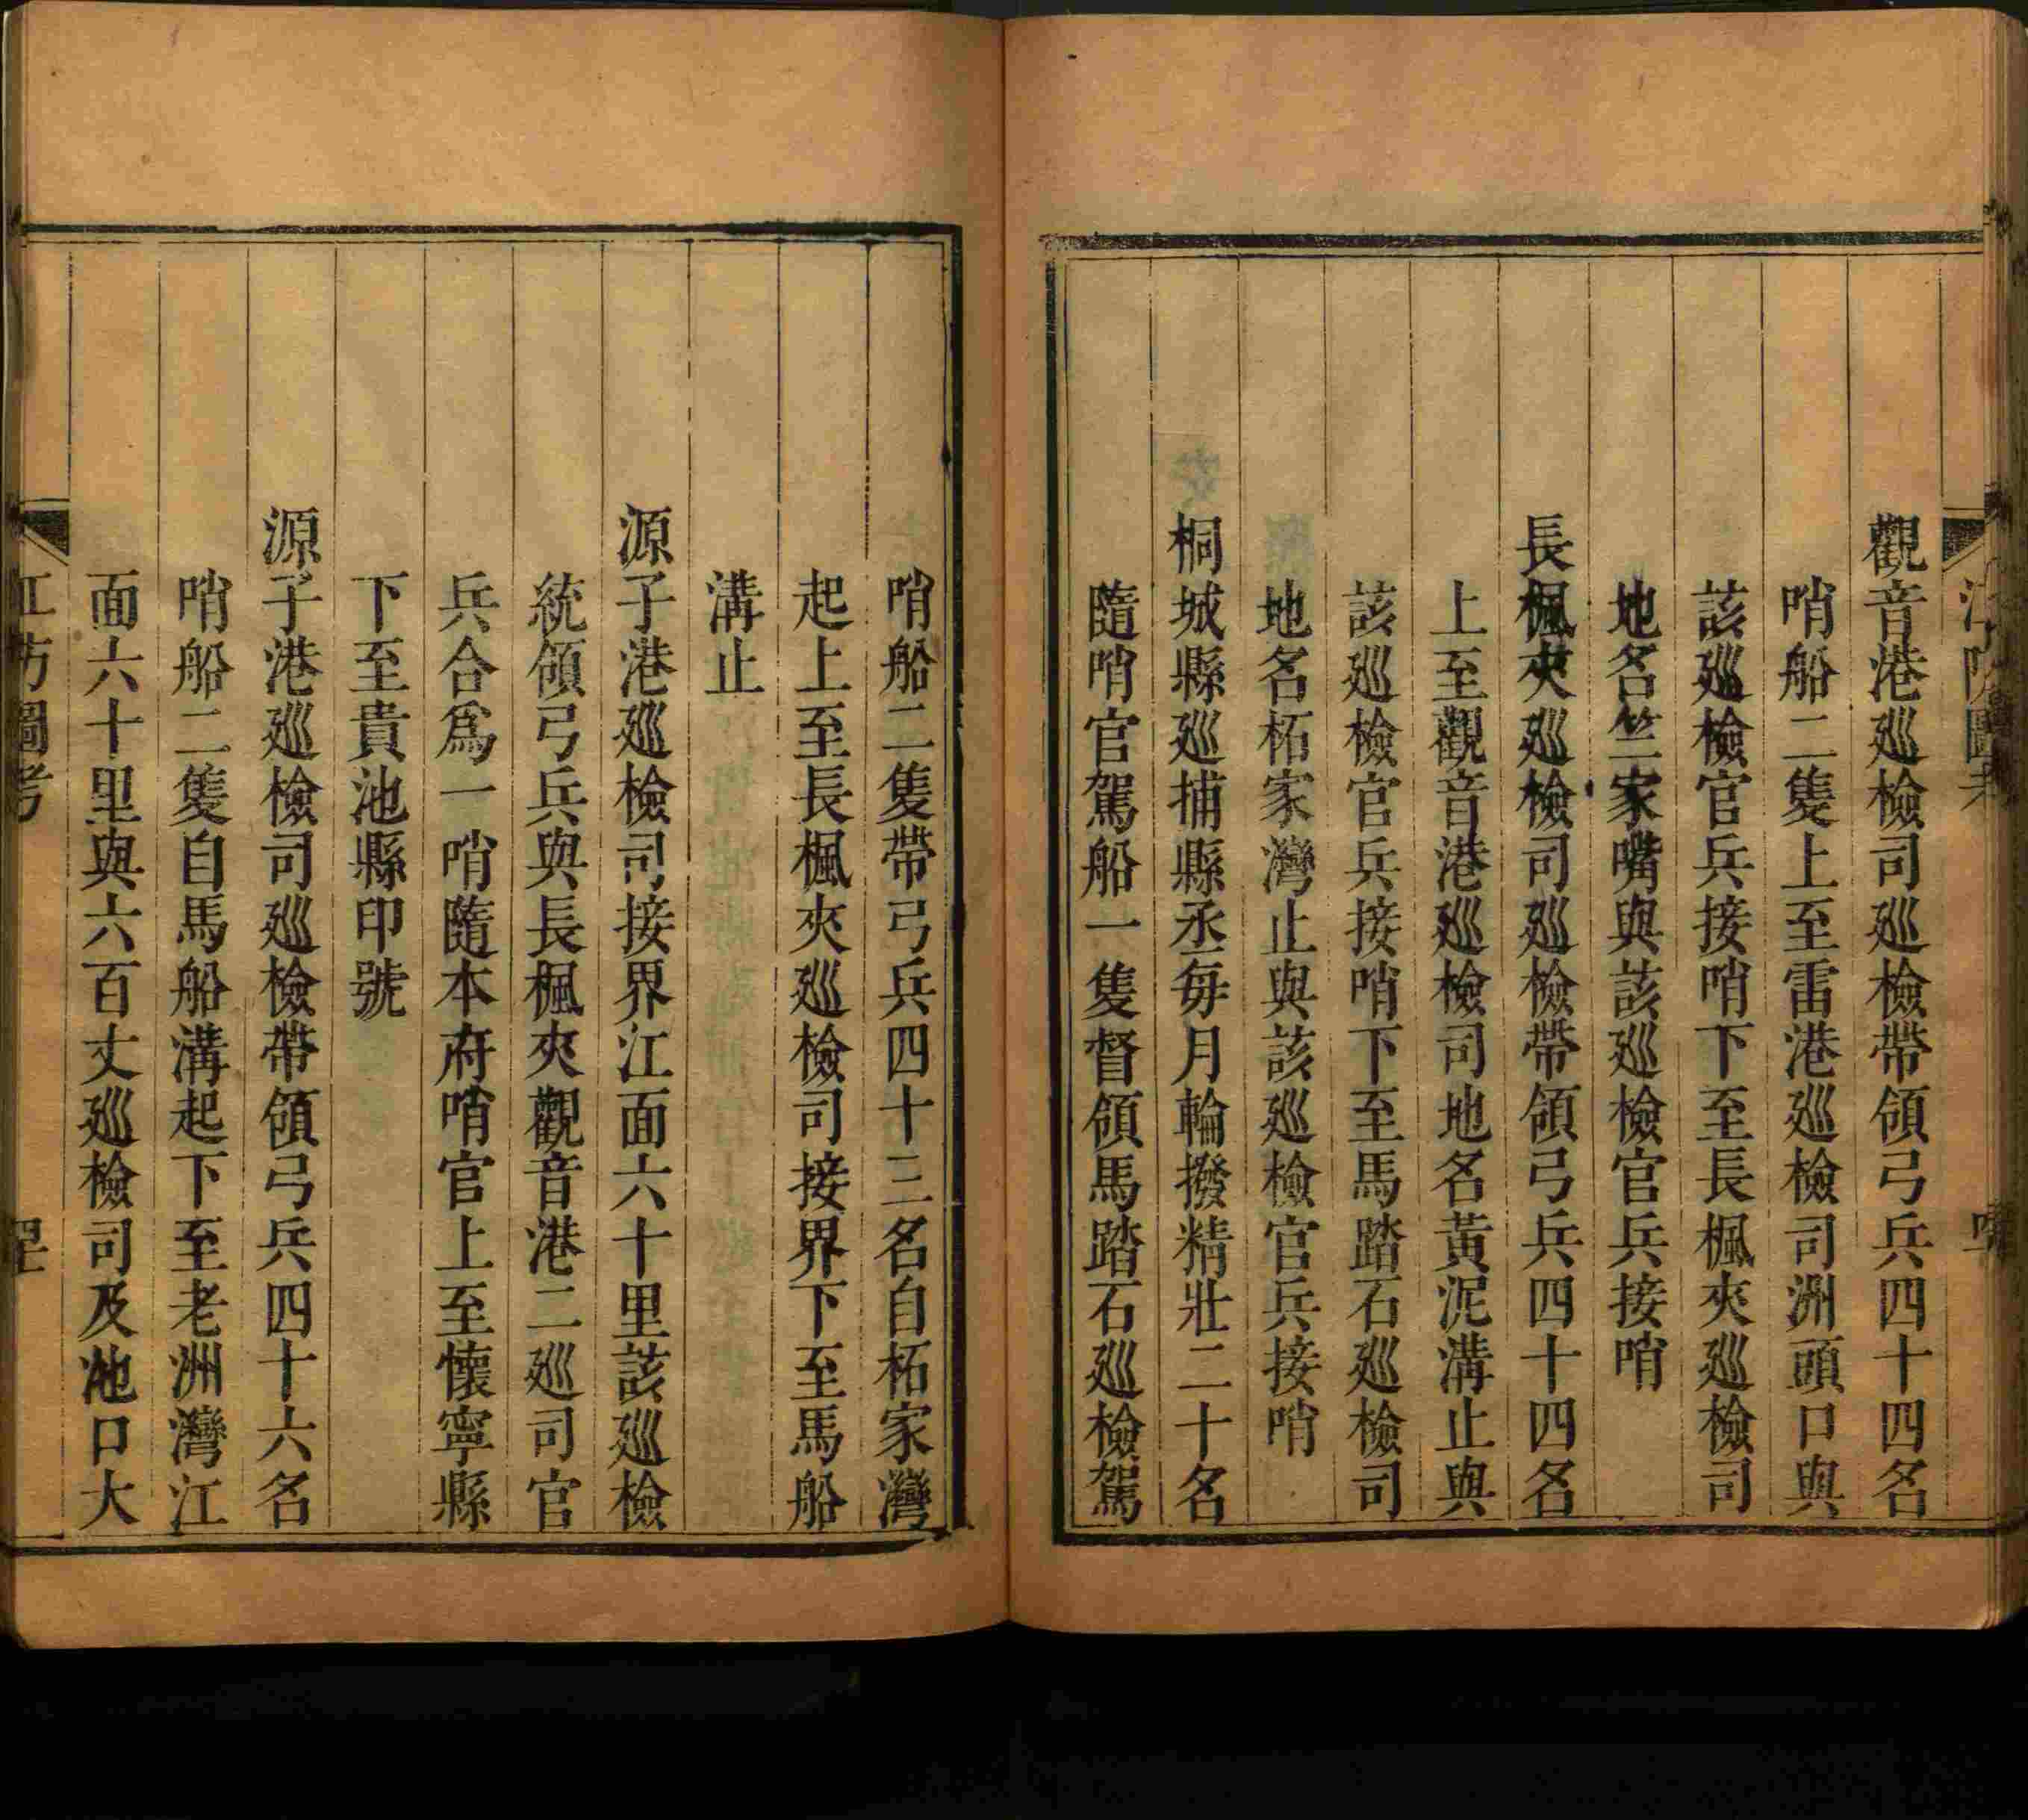 觀音港廵檢司廵檢帶領弓兵四十四名
哨船二隻上至雷港廵檢司洲頭口與
該廵檢官兵接哨下至長楓夾廵檢司
地名竺家嘴與該廵檢官兵接哨
長楓夾廵檢司廵檢帶領弓兵四十四名
上至觀音港廵檢司地名黃泥溝止與
該廵檢官兵接哨下至馬踏石廵檢司
地名柘家灣止與該廵檢官兵接哨
桐城縣廵捕縣丞每月輪撥精壯二十名
隨哨官駕船一隻督領馬踏石廵檢駕
哨船二隻帶弓兵四十三名自柘家灣
起上至長楓夾廵檢司接界下至馬船
溝止
源子港廵檢司接界江面六十里該廵檢
統領弓兵與長楓夾觀音港二廵司官
兵合爲一哨隨本府哨官上至懷寧縣
下至貴池縣印號
源子港廵檢司廵檢帶領弓兵四十六名
哨船二隻自馬船溝起下至老洲灣江
面六十里與六百丈廵檢司及池口大
江防圖考